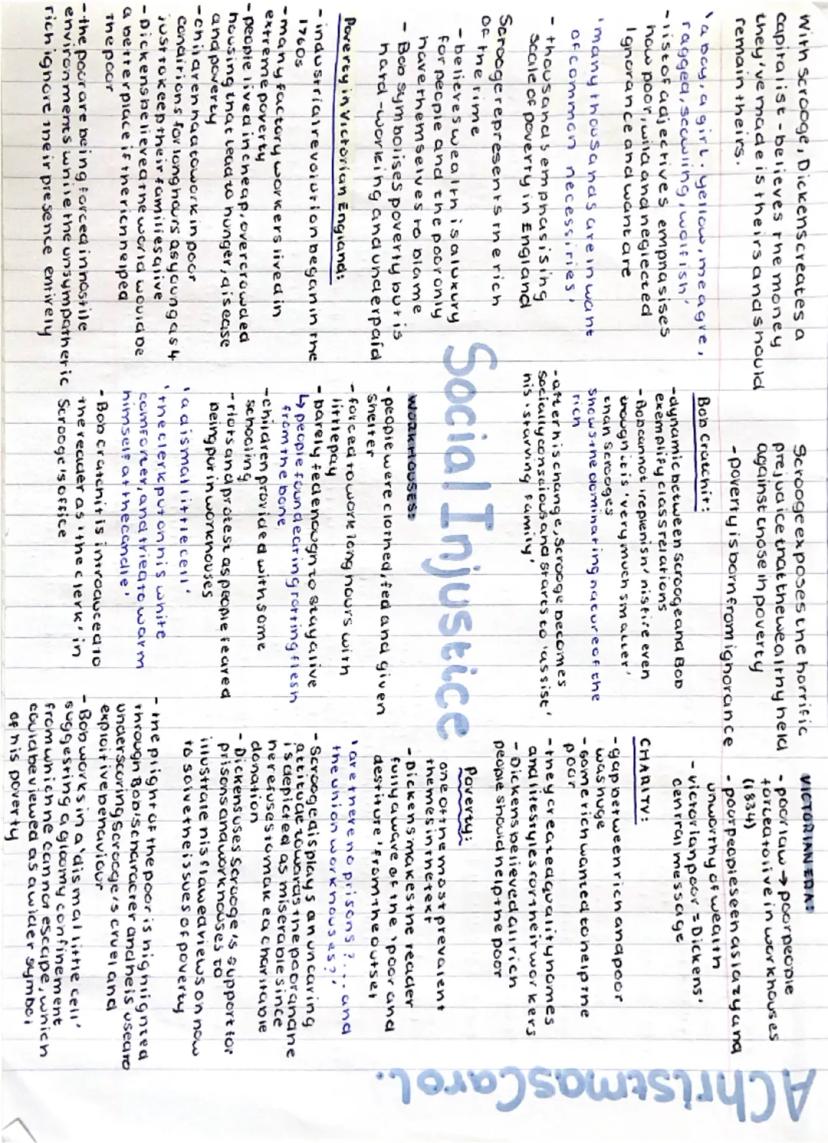 With Scrooge, Dickens creates a
capitalist - believes the money
they've made is theirs and should
remain theirs.
'a boy, a girl; yellow, meagre,
ragged, scowling, wolfish'
- list of adjectives emphasises
how poor, wild and neglected
Ignorance and want are
'many thousands are in want
of common necessities'
- thousands emphasising
scale of poverty in England
Scrooge represents the rich
of the time
- believes wealth is a luxury
for people and the poor only
have themselves to blame
- Bob symbolises poverty but is
hard-working and underpaid
Poverty in Victorian England:
- industrial revolution began in the
1760s
- many factory workers lived in
extreme poverty
- people lived in cheap, overcrowded
housing that lead to hunger, disease
and poverty
- children had to work in poor
conditions for long hours as young as 4
just to keep their families alive
- Dickens believed the world would be
a better place if the rich helped
the poor
- the poor are being forced in hostile
environments while the unsympathetic
rich ignore their presence entirely
Scrooge exposes the horrific
prejudice that the wealthy held
against those in poverty
- poverty is born from ignorance
Bob Cratchit:
- dynamic between Scrooge and Bob
exemplify class relations
- Bob cannot 'replenish' his fire even
though it is 'very much smaller'
than Scrooges
shows the dominating nature of the
rich
- after his change, Scrooge becomes
socially conscious and starts to 'assist'
his 'starving family'
Social Injustice
WORKHOUSES:
- people were clothed, fed and given
shelter
- forced to work long hours with
little pay
- barely fed enough to stay alive
↳ people found eating rotting flesh
from the bone
- children provided with some
schooling
- riots and protest as people feared
being put in workhouses
'a dismal little cell'
'the clerk put on his white
comforter, and tried to warm
himself at the candle'
- Bob Cratchit is introduced to
the reader as 'the clerk' in
Scrooge's office
VICTORIAN ERA:
- poor law → poor people
forced to live in workhouses
(1834)
- poor people seen as lazy and
unworthy of wealth
- victorian poor = Dickens'
central message
CHARITY:
- gap between rich and poor
was huge
- some rich wanted to help the
poor
- they created quality homes
and lifestyles for their workers
- Dickens believed all rich
people should help the poor
Poverty:
one of the most prevalent
themes in the text
- Dickens makes the reader
fully aware of the 'poor and
destitute' from the outset
'are there no prisons?... and
the union workhouses?'
- Scrooge displays an uncaring
attitude towards the poor and he
is depicted as miserable since
he refuses to make a charitable
donation
- Dickens uses Scrooge's support for
prisons and workhouses to
illustrate his flawed views on how
to solve the issues of poverty
- the plight of the poor is highlighted
through Bob's character and he is used to
underscoring Scrooge's cruel and
exploitive behaviour
- Bob works in a 'dismal little cell'
suggesting a gloomy confinement
from which he cannot escape, which
could be viewed as a wider symbol
of his poverty
A Christmas Carol.